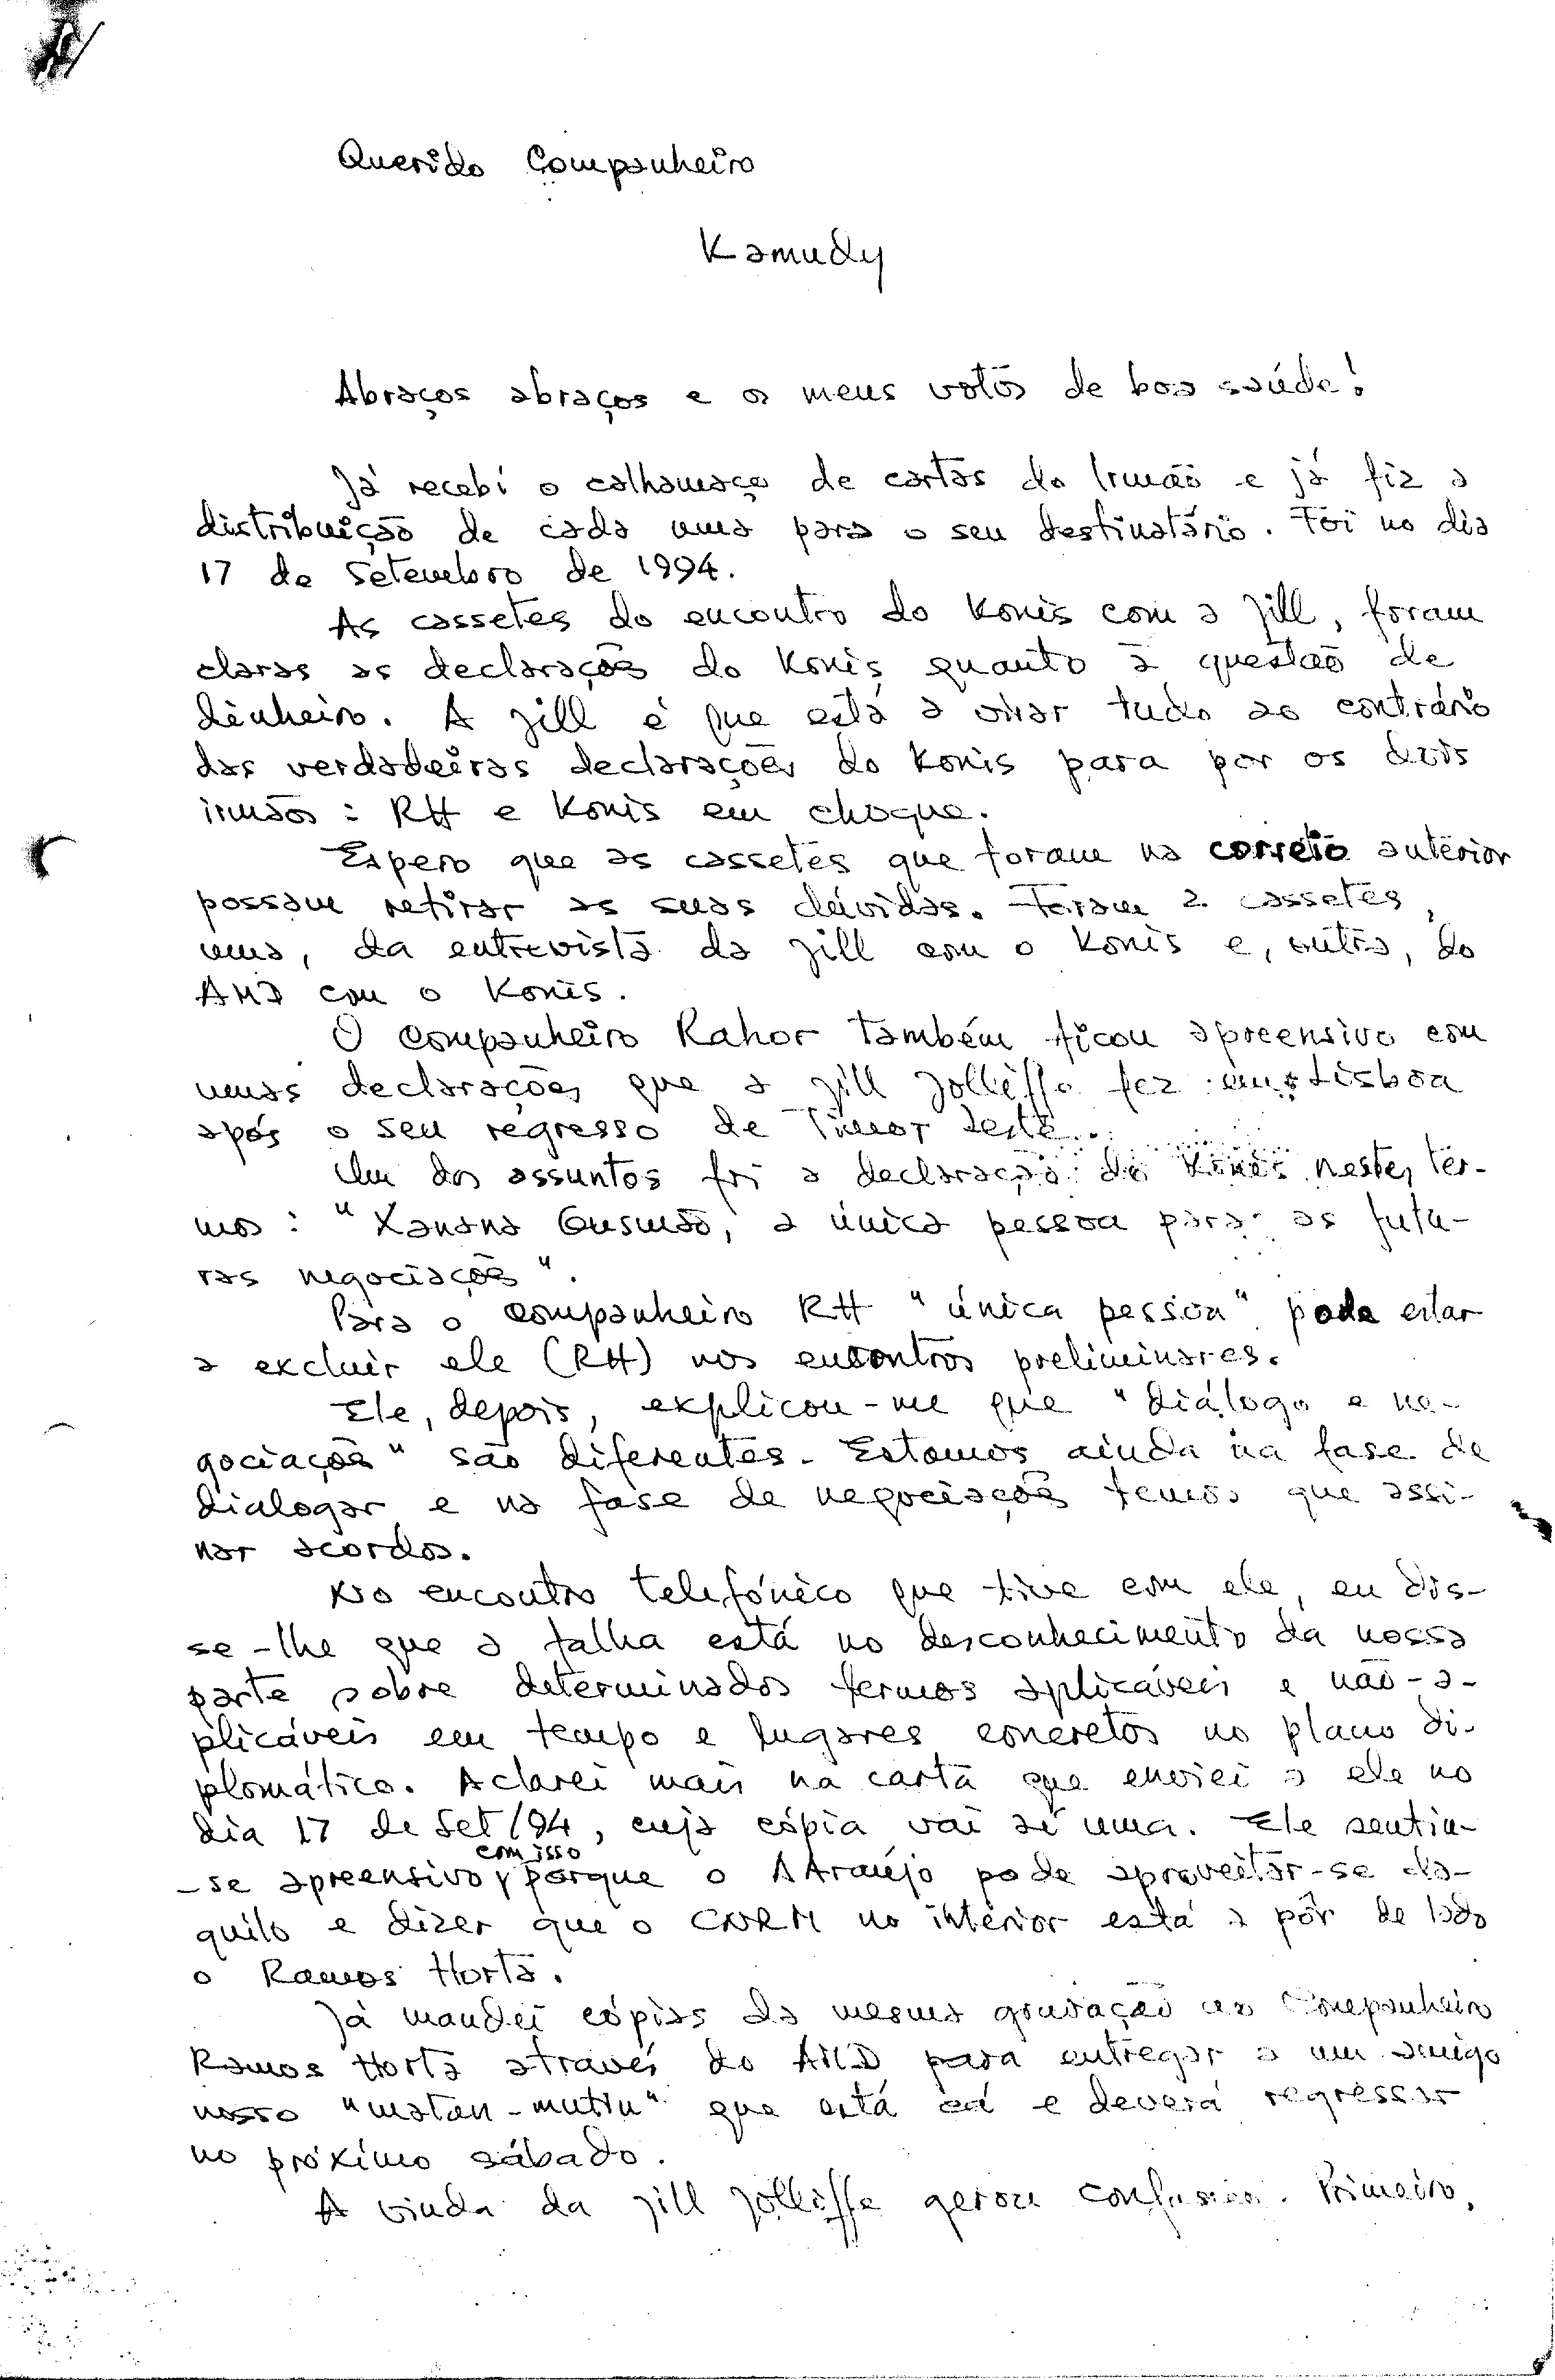 Querido Companheiro
Kamudy
Abraços abraços e os meus votos de boa saúde!
Já recebi o calhamaço de cartas do Irmão e já fiz a
distribuição de cada uma para o seu destinatário. Foi no dia
17 de Setembro de 1994.
As cassetes do encontro do Konis com a Jill, foram
claras as declarações do Konis quanto à questão de
dinheiro. A Jill é que está a virar tudo ao contrário
das verdadeiras declarações do Konis para por os dois
irmãos: RH e Konis em choque.
Espero que as cassetes que foram no correio anterior
possam retirar as suas dúvidas. Foram 2 cassetes,
uma, da entrevista da Jill com o Konis e, outra, do
AMD com o Konis.
O companheiro Rahor também ficou apreensivo com
umas declarações que a Jill Jolliffe fez em Lisboa
após o seu regresso de Timor Leste.
Um dos assuntos foi a declaração do Konis nestes ter-
mos: "Xanana Gusmão, a única pessoa para as futu-
ras negociações".
Para o companheiro RH "única pessoa" pode estar
a excluir ele (RH) nos encontros preliminares.
Ele, depois, explicou-me que "diálogo e ne-
gociação" são diferentes. Estamos ainda na fase de
dialogar e na fase de negociações temos que assi-
nar acordos.
No encontro telefónico que tive com ele, eu dis-
se-lhe que a falha está no desconhecimento da nossa
parte sobre determinados termos aplicáveis e não-a-
plicáveis em tempo e lugares concretos no plano di-
plomático. Aclarei mais na carta que enviei a ele no
dia 17 de Set/94, cuja cópia vai aí uma. Ele sentiu-
com isso
-se apreensivo, porque o AAraújo pode aproveitar-se da-
quilo e dizer que o CNRM no interior está a pôr de lado
o Ramos Horta.
Já mandei cópias da mesma gravação ao Companheiro
Ramos Horta através do AMD para entregar a um amigo
nosso "matan-mutin" que está cá e deverá regressar
no próximo sábado.
A vinda da Jill Jolliffe gerou confusão. Primeiro,